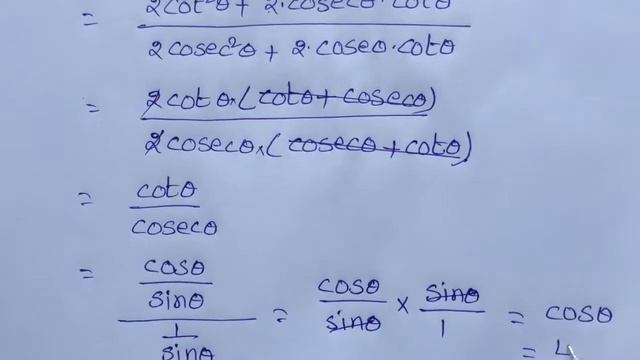 = 2cot²θ + 2·cosecθ·cotθ
2cosec²θ + 2·cosecθ·cotθ
= 2cotθ×(cotθ + cosecθ)
2cosecθ×(cosecθ + cotθ)
= cotθ
cosecθ
= cosθ
sinθ
1
sinθ
= cosθ/sinθ × sinθ/1 = cosθ
= 4